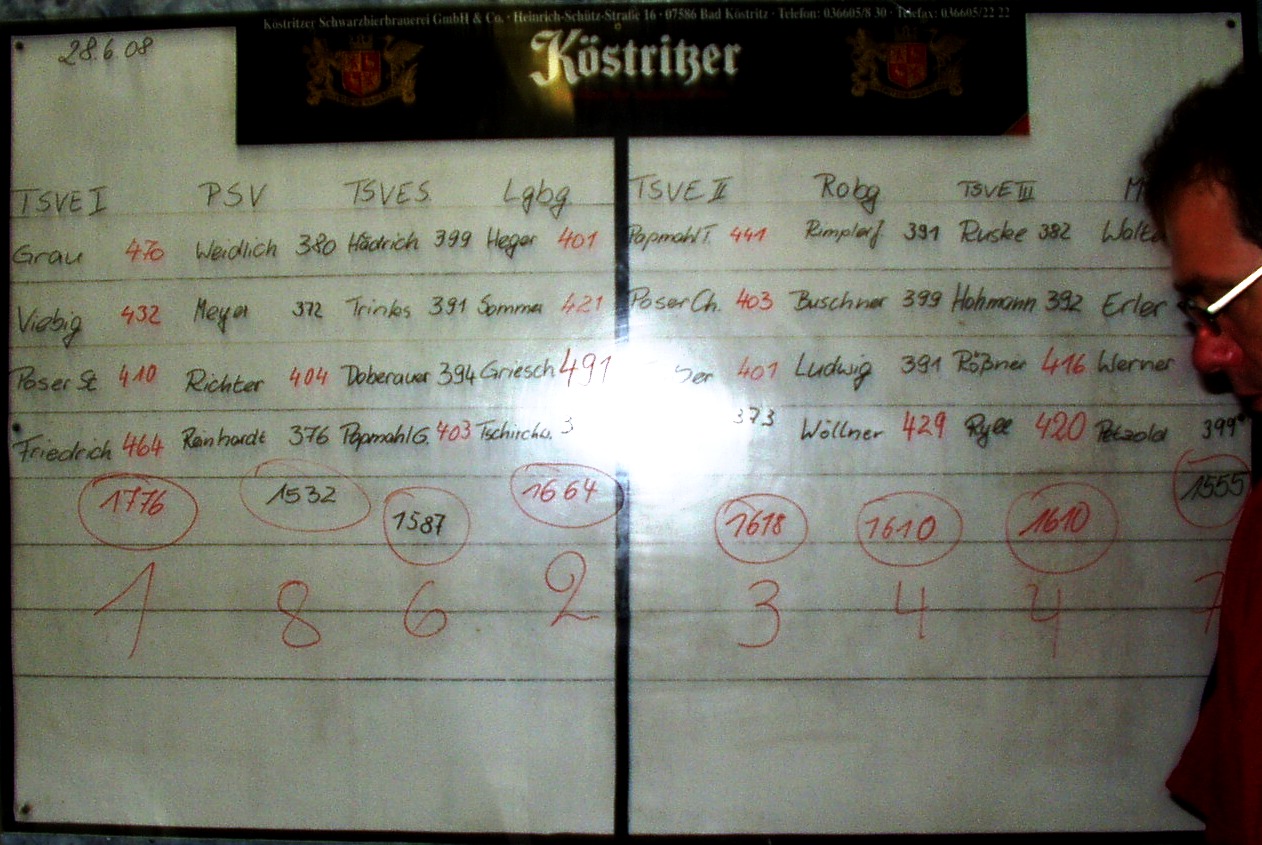 Köstritzer Schwarzbierbrauerei GmbH & Co. · Heinrich-Schütz-Straße 16 · 07586 Bad Köstritz · Telefon: 036605/8 30 · Telefax: 036605/22 22
28.6.08
Köstritzer
TSVE I PSV TSVES Lgbg TSVE II Robg TSVE III M
Grau 476 Weidlich 380 Hädrich 399 Heger 401 Papmahl T. 441 Rimplerf 391 Ruske 382
Viebig 432 Meyer 372 Trinks 391 Sommer 421 Poser Ch. 403 Buschner 399 Hohmann 392 Erler
Poser St 410 Richter 404 Doberauer 394 Griesch 491 401 Ludwig 391 Rößner 416 Werner
Friedrich 464 Reinhardt 376 Papmahl G. 403 373 Wöllner 429 Ryll 420 Petzold 399
1776 1532 1587 1664 1618 1610 1610 1555
1 8 6 2 3 4 4 7